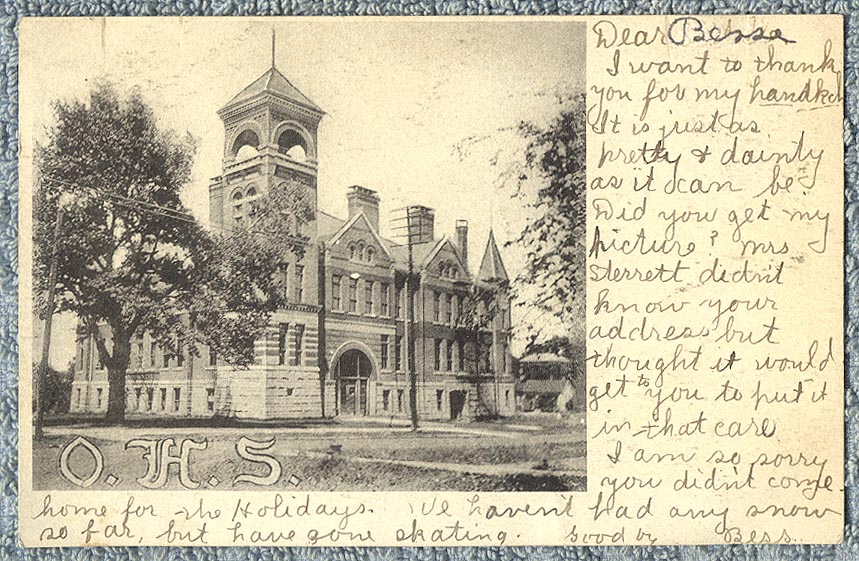 O. H. S.
Dear Besse
I want to thank
you for my handkch
It is just as
pretty & dainty
as it can be.
Did you get my
picture? Mrs
Sterrett didn't
know your
address but
thought it would
get to you to put it
in that care.
I am so sorry
you didn't come
home for the Holidays. We haven't had any snow
so far, but have gone skating. Good by Bess.